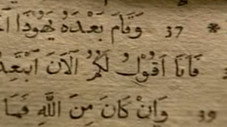 * 37 وَقَامَ بَعْدَهُ يَهُوذَا
فَانَا اَقُولُ لَكُمُ الْآنَ
39 وَاِنْ كَانَ مِنَ اللّٰهِ فَمَا